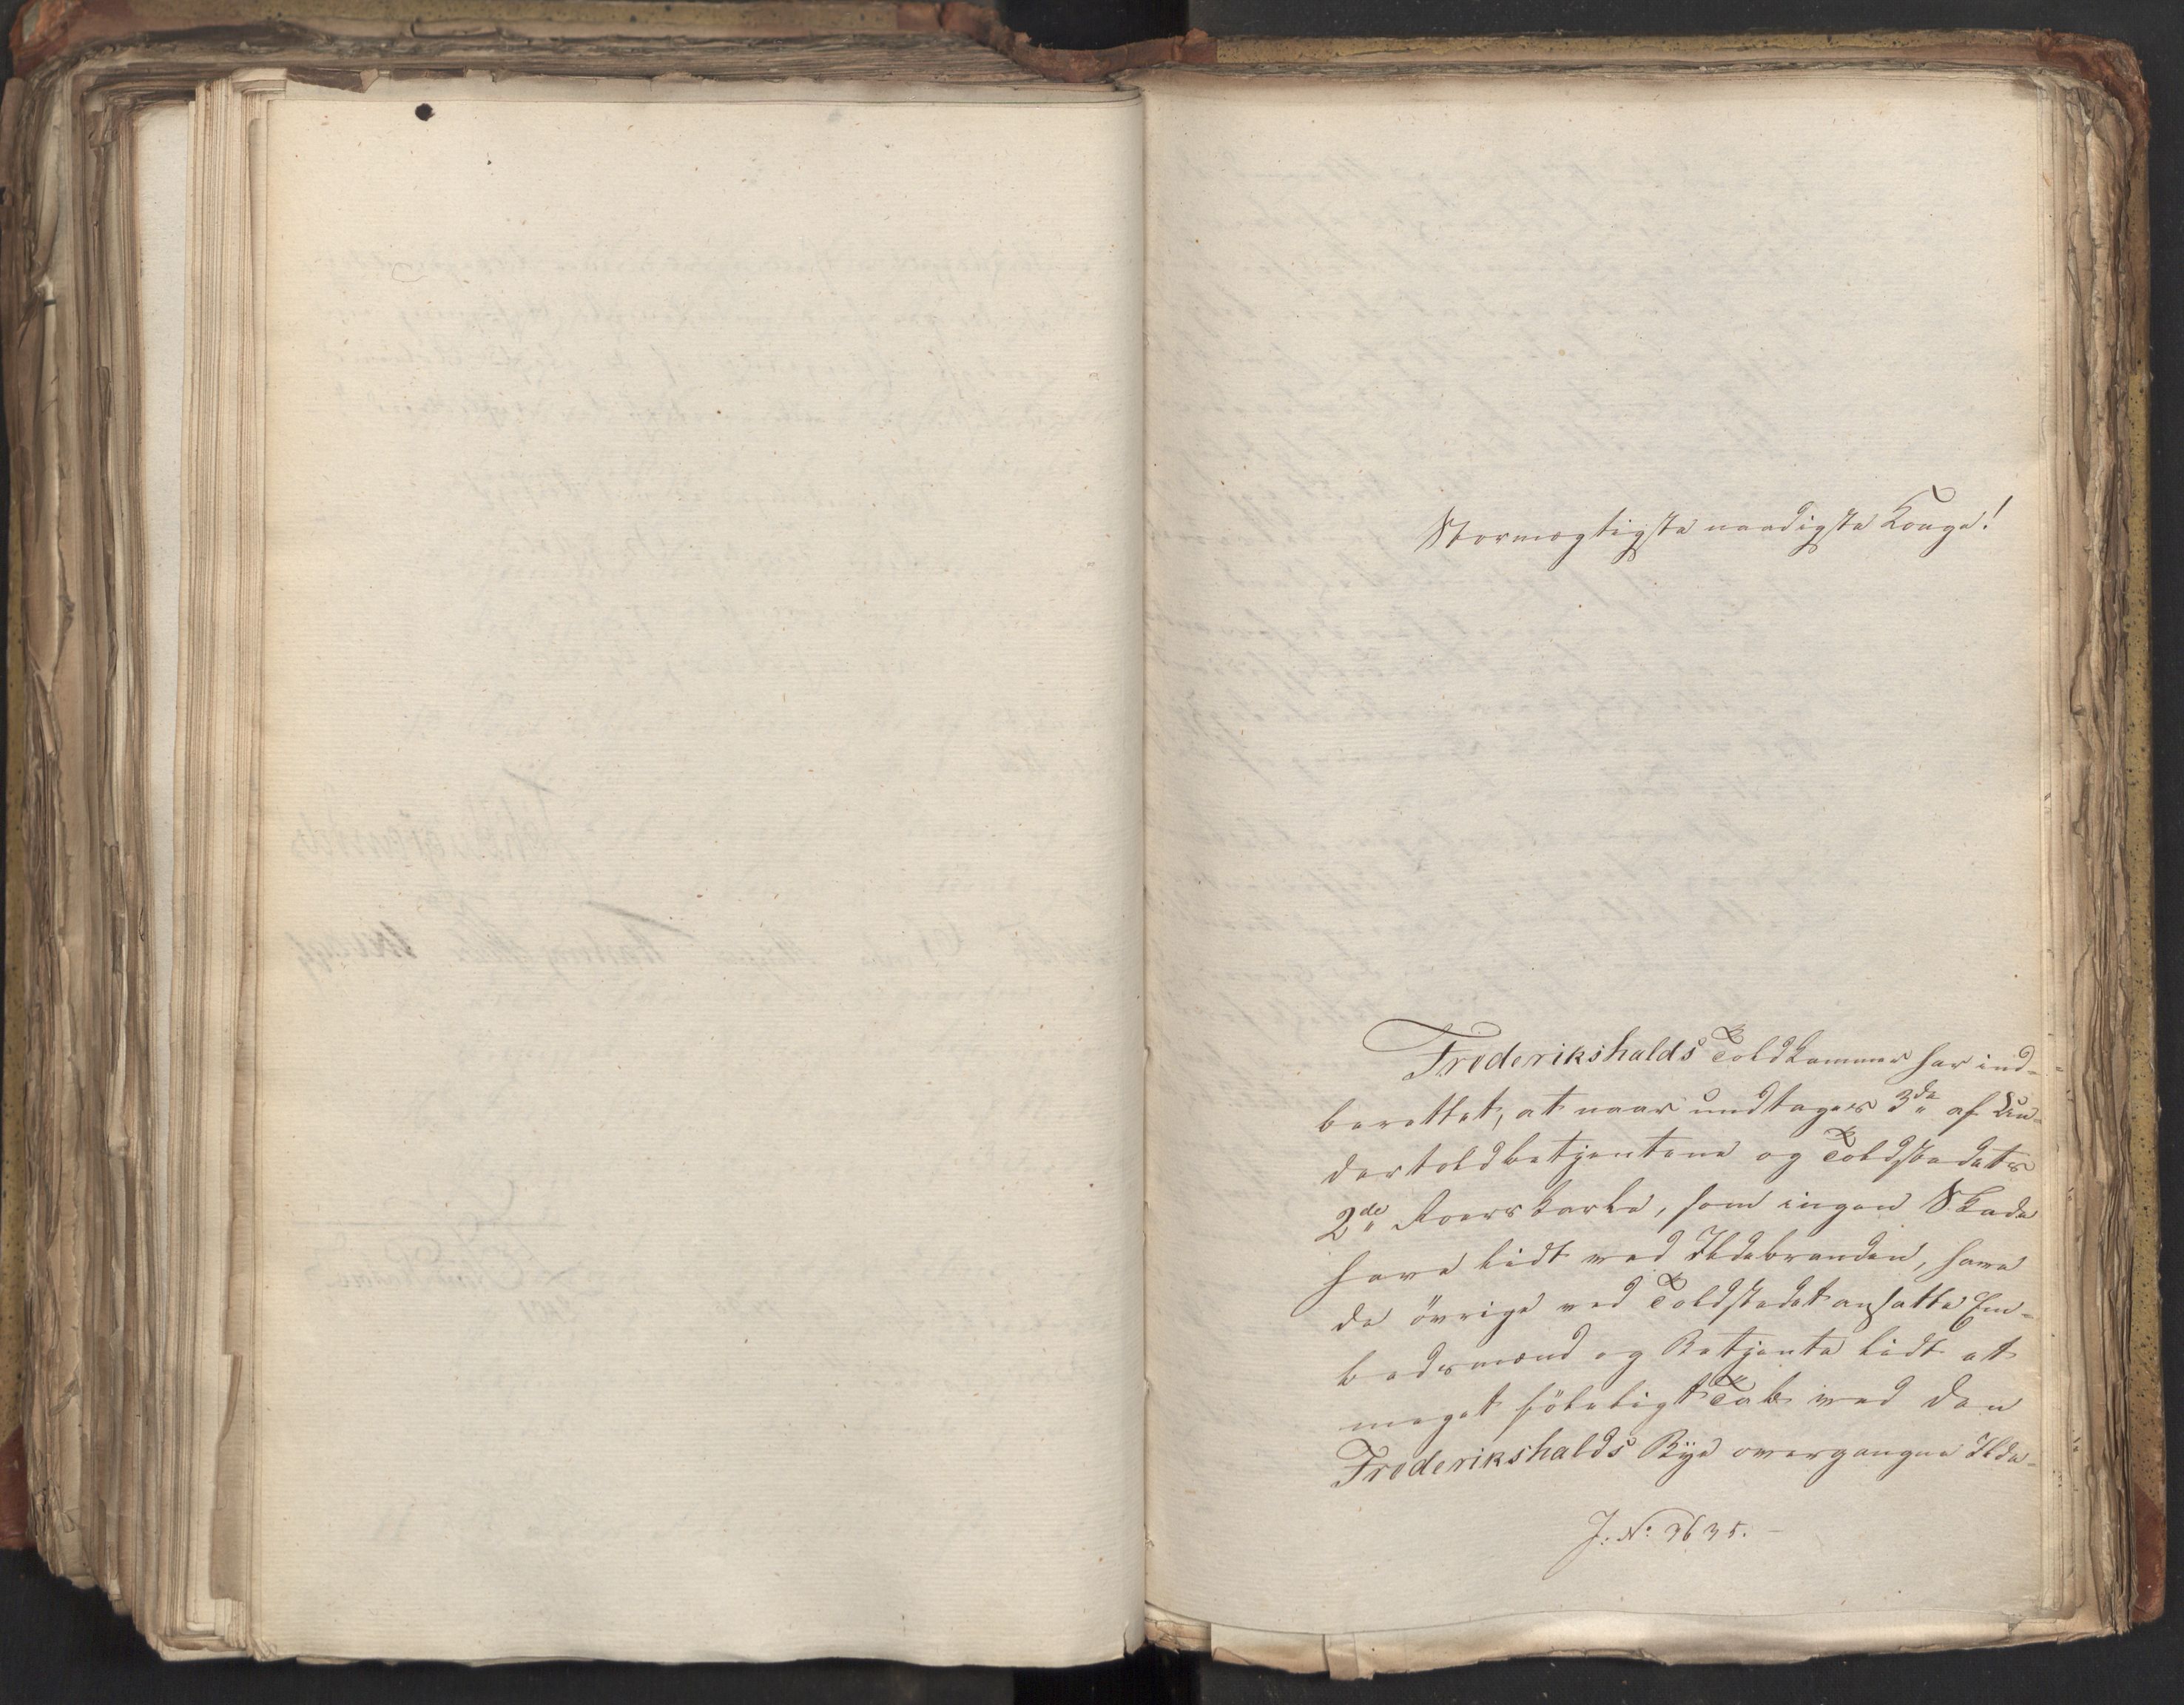 Stormægtigste naadigste Konge!
Frederikshalds Toldkammer har ind-
berettet, at naar undtages 3de af Un-
dertoldbetjentene og Toldstedets
2de Roerskarle, som ingen Skade
have lidt ved Ildebranden, have
de övrige ved Toldstedet ansatte Em-
bedsmænd og Betjente lidt et
meget föleligt Tab ved den
Frederikshalds Bye overgangne Ilde-
J: No: 3635.